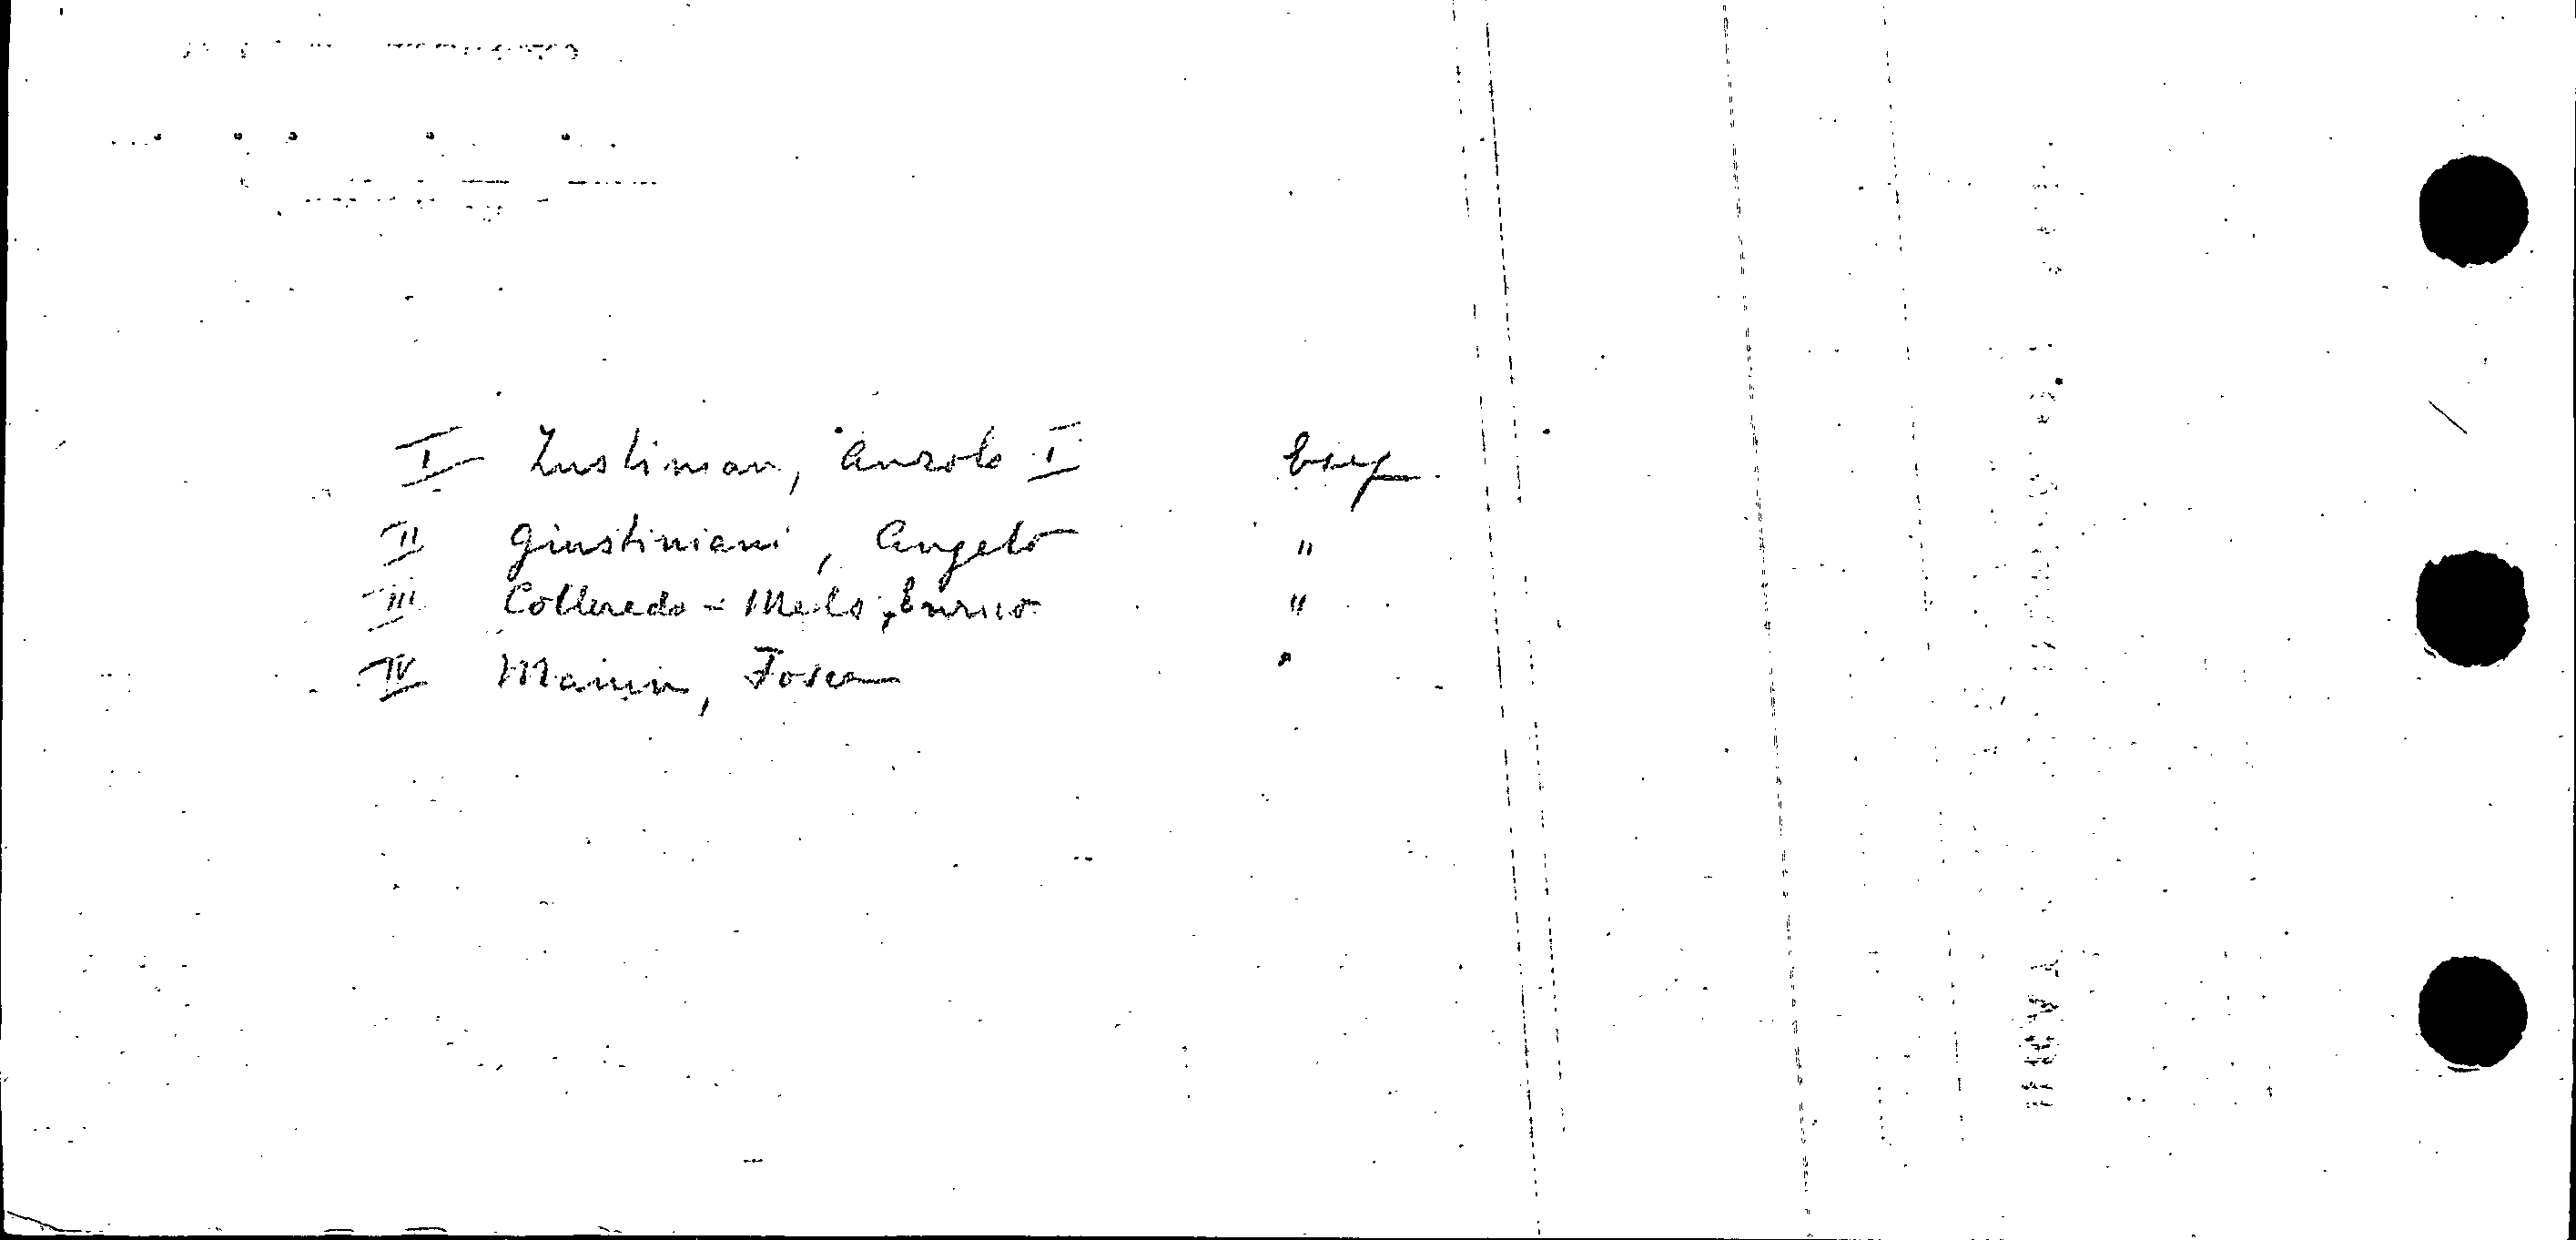 I Zustinian, Anzolo I
II Giustiniani, Angelo "
III Colloredo - Mels, Enrico "
IV Manin, Fosca "